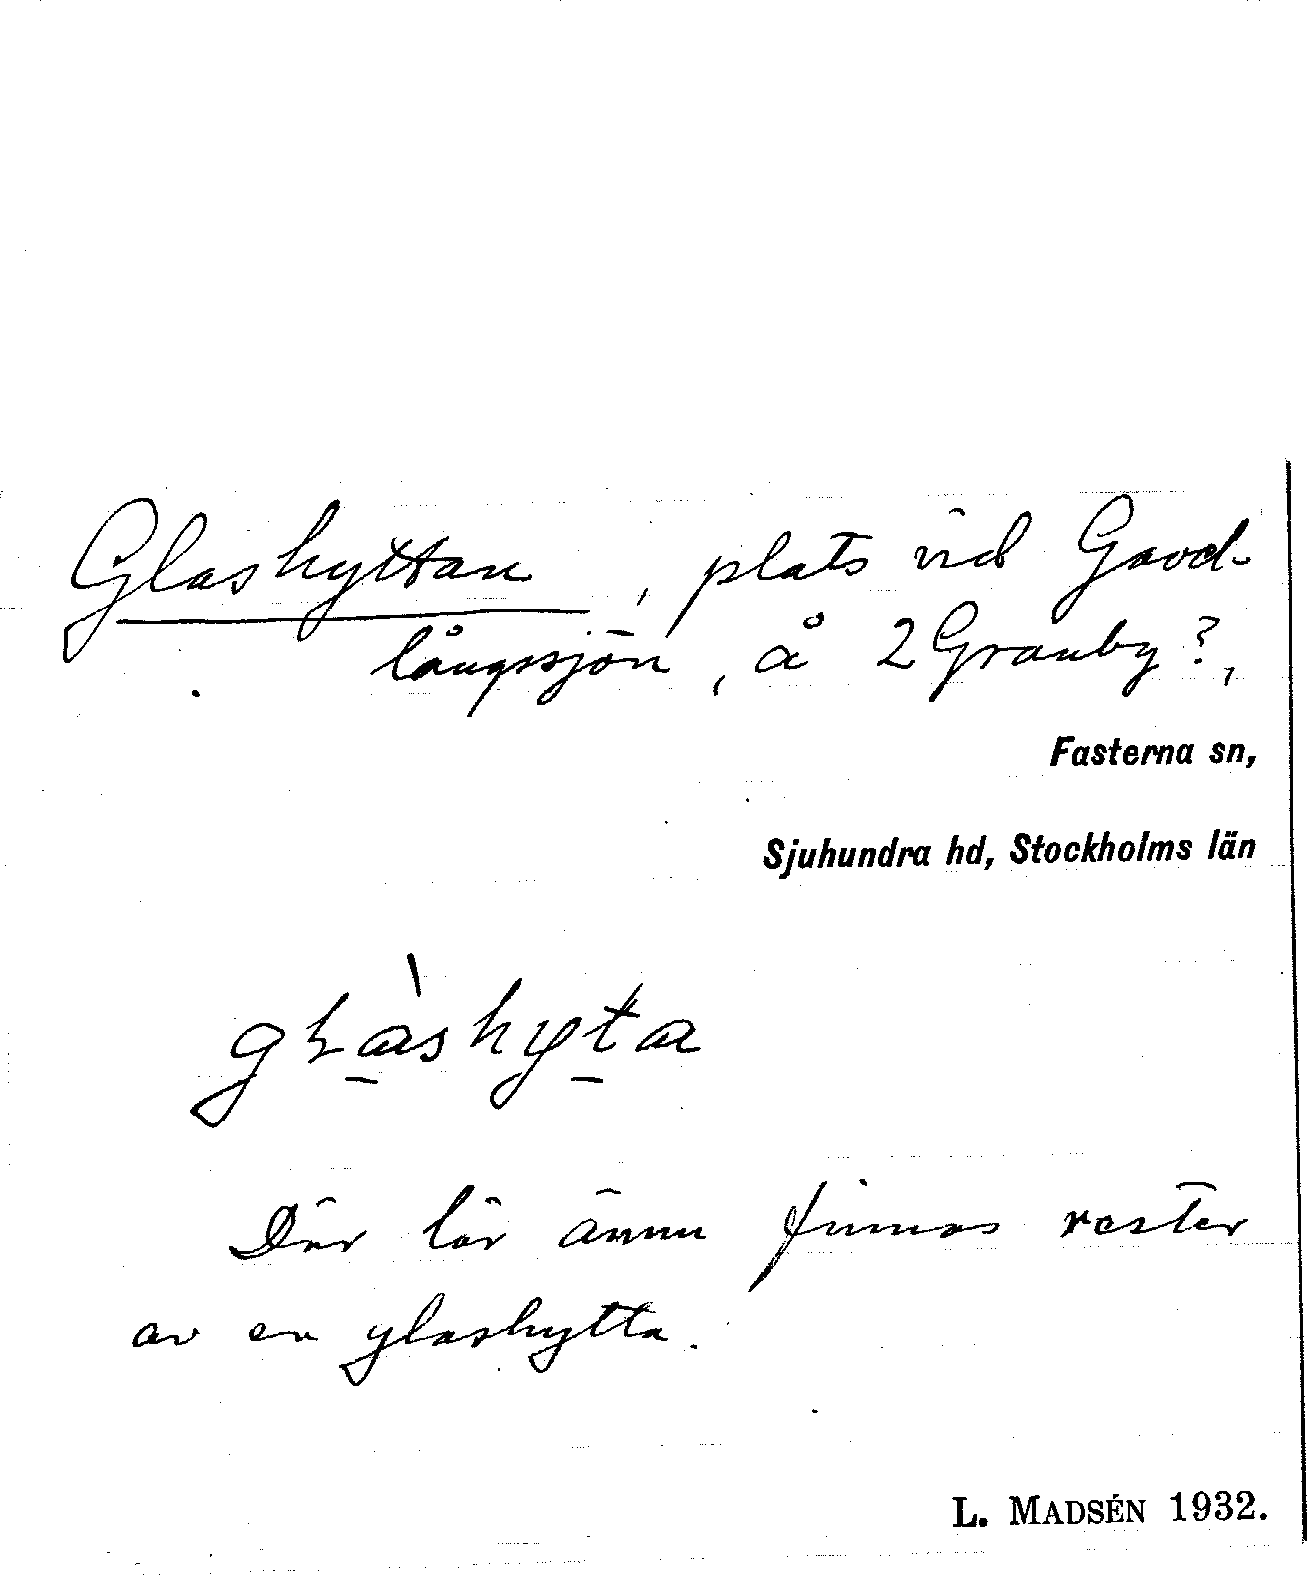 Glashyttan, plats vid Gavel-
långsjön, å 2 Granby?,
Fasterna sn,
Sjuhundra hd, Stockholms län
Där lär ännu finnas rester
av en glashytta.
L. MADSÉN 1932.